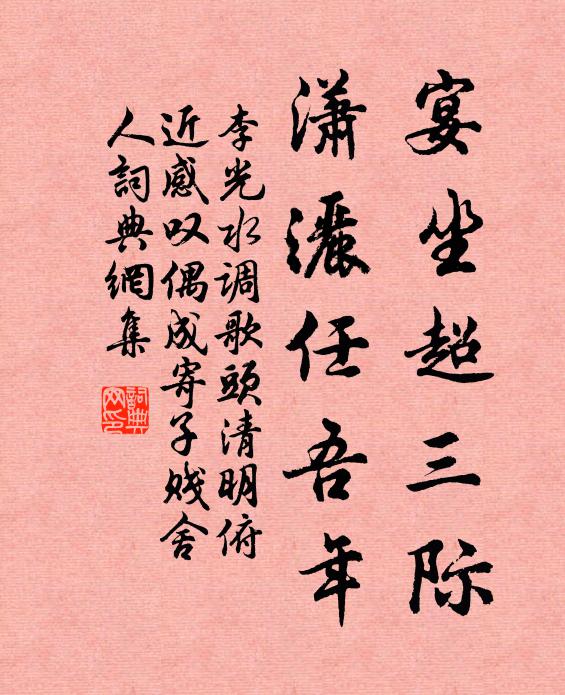 宴坐超三际
潇灑任吾年
李光水调歌頭清明俯
近感叹偶成寄子贱舍
人詞典網集
詞典网印